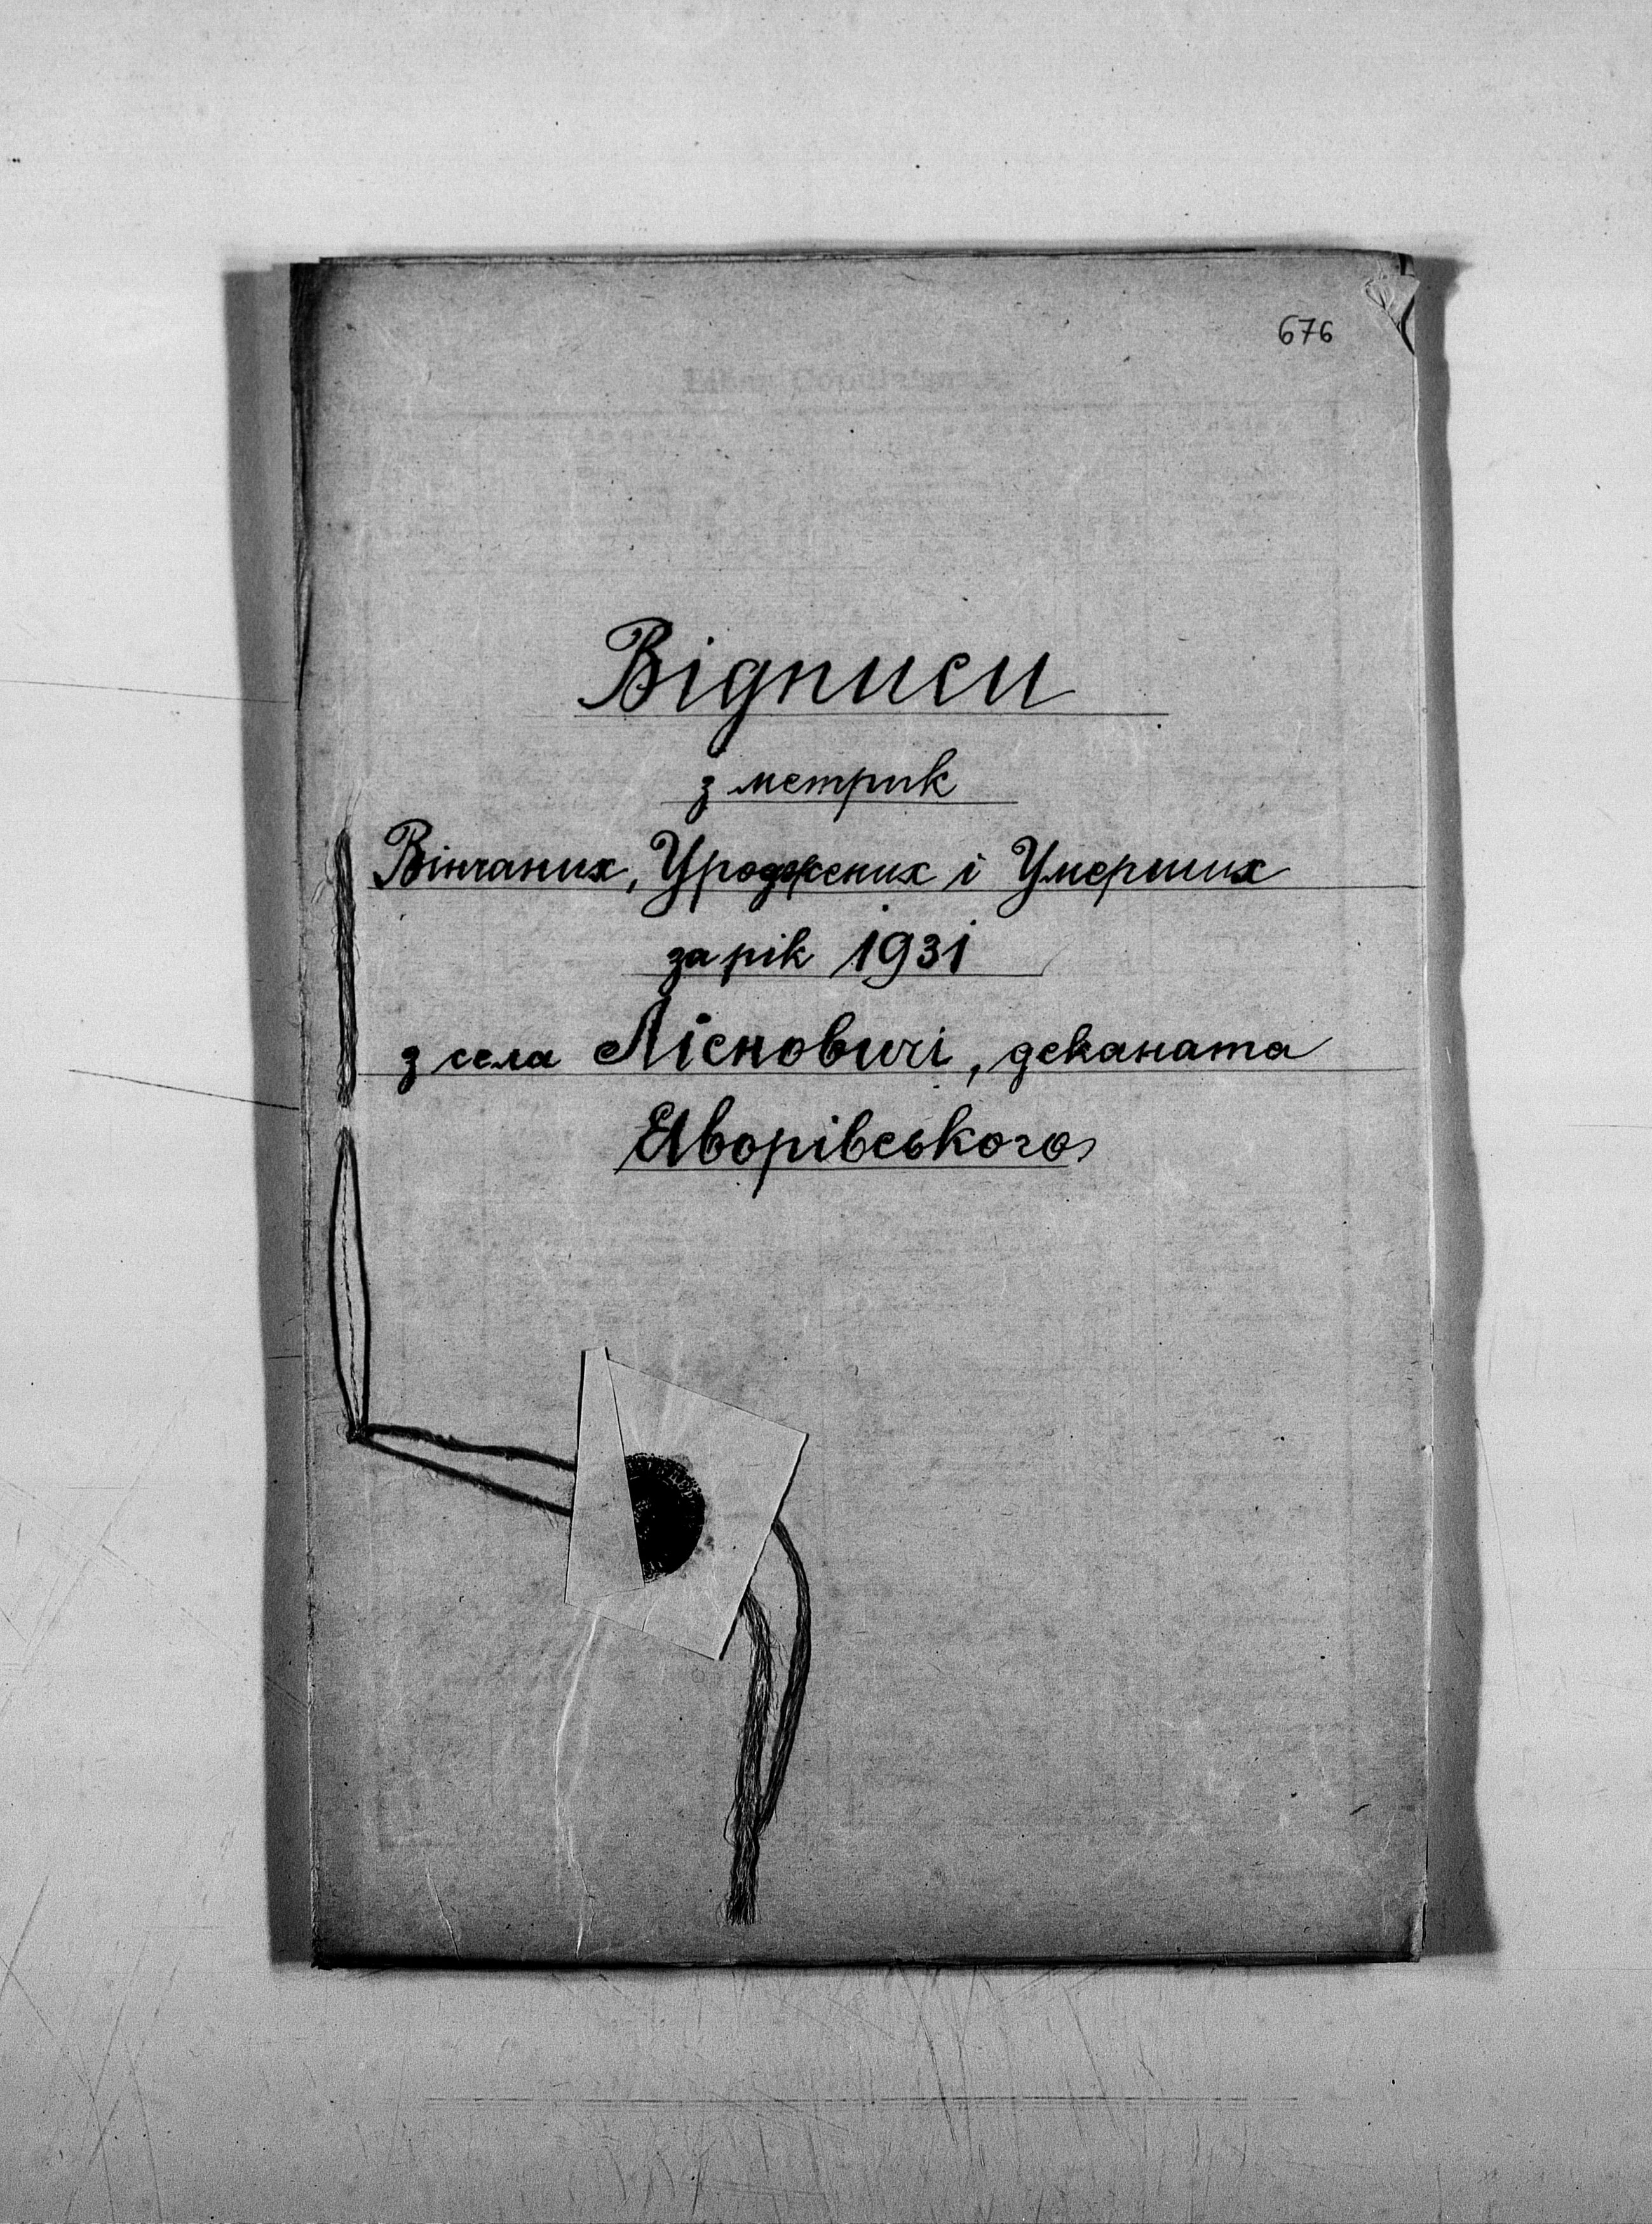 676
Відписи
з метрик
Вінчаних, Уроджених і Умерших
за рік 1931
з села Лісновичі, деканата
Яворівського